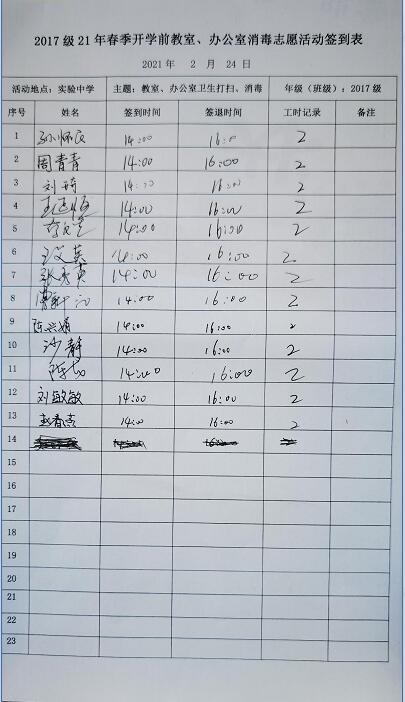 2017 级 21 年春季开学前教室、办公室消毒志愿活动签到表
2021 年 2 月 24 日
活动地点：实验中学 主题：教室、办公室卫生打扫、消毒 年级（班级）：2017级
序号 姓名 签到时间 签退时间 工时记录 备注
1 孙怀良 14:00 16:00 2
2 周青青 14:00 16:00 2
3 刘琦 14:00 16:00 2
4 14:00 16:00 2
5 14:00 16:00 2
6 14:00 16:00 2
7 14:00 16:00 2
8 14:00 16:00 2
9 陈兴娟 14:00 16:00 2
10 沙静 14:00 16:00 2
11 14:00 16:00 2
12 刘敏敏 14:00 16:00 2
13 14:00 16:00 2
14
15
16
17
18
19
20
21
22
23